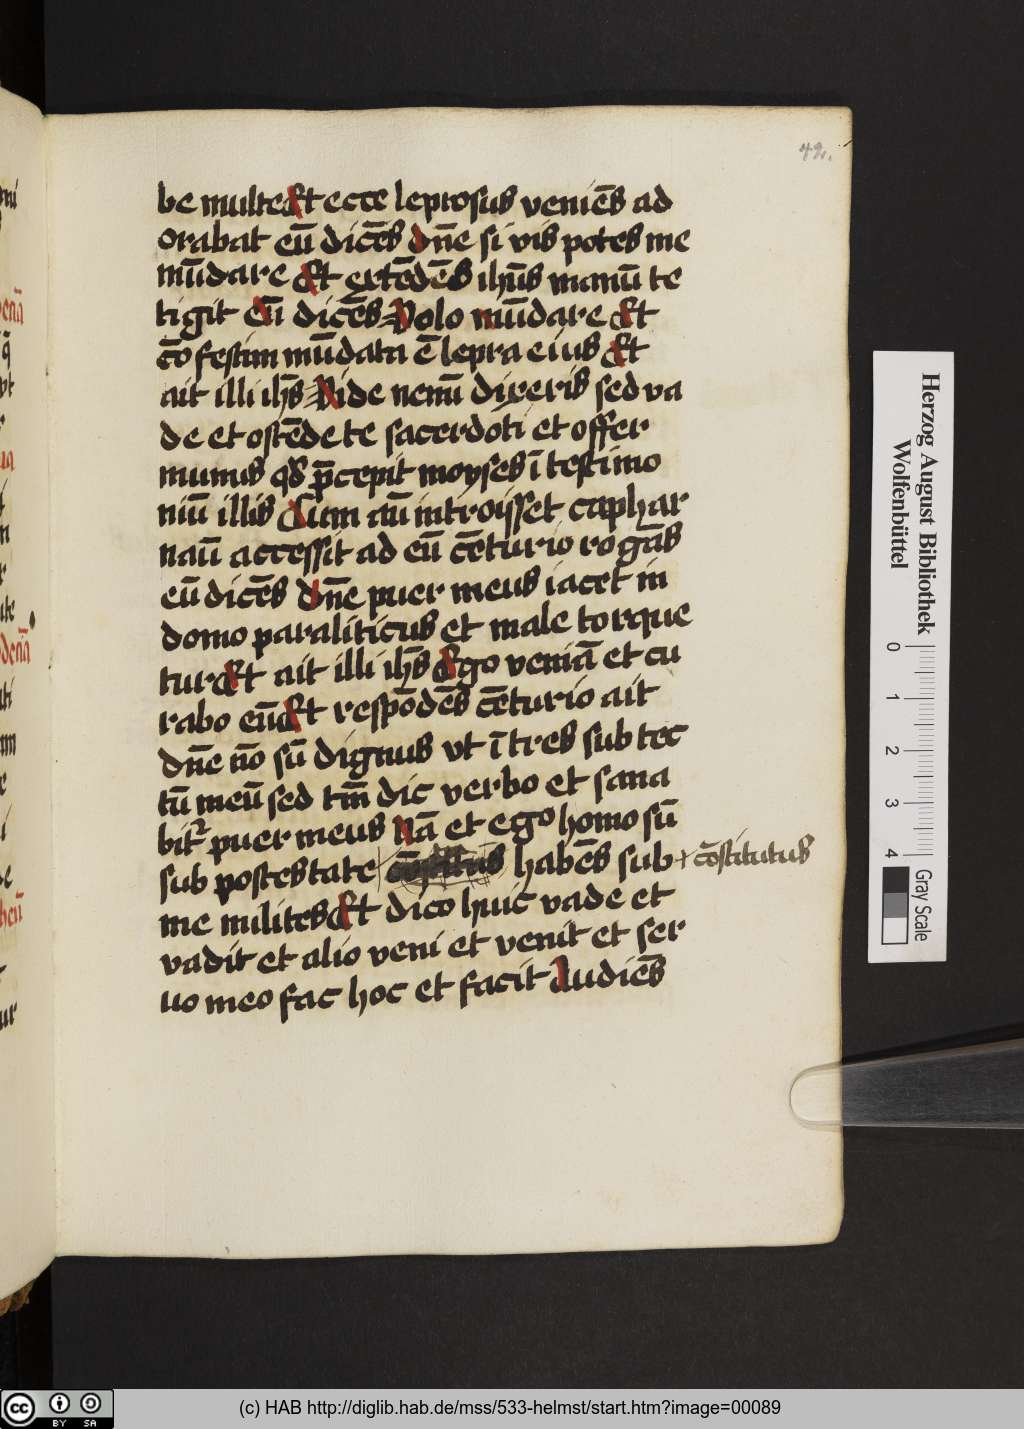 42.
be multe Et ecce leprosus veniēs ad
orabat eū dicēs dn̄e si vis potes me
mūdare Et extēdēs ihūs manū te
tigit eū dicēs Volo mūdare Et
cōfestim mūdata ē lepra eius Et
ait illi ihs̄ Vide nemī dixeris sed va
de et ostēde te sacerdoti et offer
munus qd̄ p̄cepit moyses ī testimo
niū illis Cum aū introisset caphar
naū accessit ad eū cēturio rogās
eū dicēs dn̄e puer meus iacet in
domo paraliticus et male torque
tur Et ait illi ihs̄ Ego veniā et cu
rabo eū Et respōdēs cēturio ait
dn̄e nō sū dignus vt ītres sub tec
tū meū sed tm̄ dic verbo et sana
bit᷑ puer meus Nā et ego homo sū
sub postestate habēs sub + cōstitutus
me milites Et dico huic vade et
vadit et alio veni et venit et ser
uo meo fac hoc et facit Audiēs
Herzog August Bibliothek
Wolfenbüttel
0 1 2 3 4
Gray Scale
cc BY SA
(c) HAB http://diglib.hab.de/mss/533-helmst/start.htm?image=00089